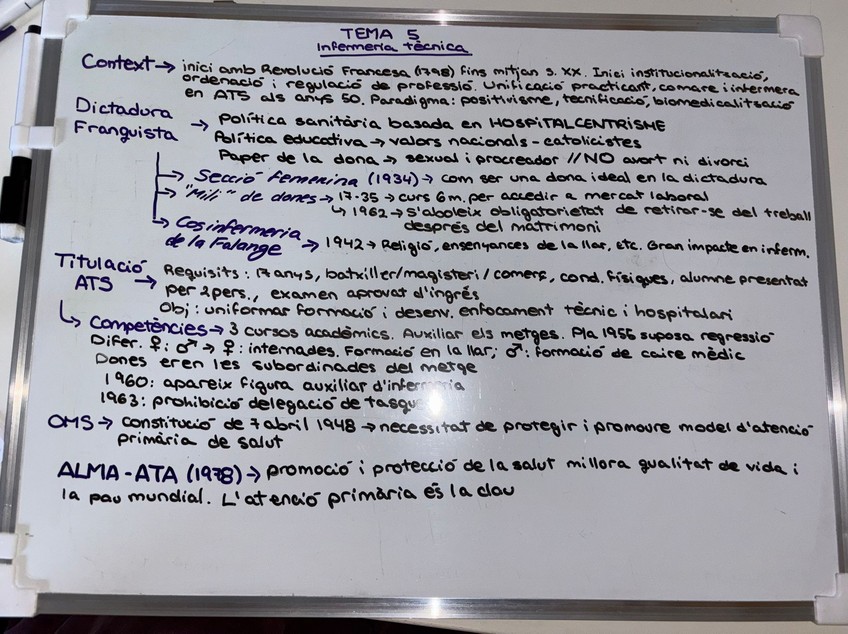 TEMA 5
Infermeria tècnica
Context → inici amb Revolució Francesa (1798) fins mitjan s. XX. Inici institucionalització,
ordenació i regulació de professió. Unificació practicant, comare i infermera
en ATS als anys 50. Paradigma: positivisme, tecnificació, biomedicalització
Dictadura
Franquista → Política sanitària basada en HOSPITALCENTRISME
Política educativa → valors nacionals-catolicistes
Paper de la dona → sexual i procreador // NO avort ni divorci
→ Secció femenina (1934) → com ser una dona ideal en la dictadura
→ "Mili" de dones → 17-35 → curs 6m. per accedir a mercat laboral
↳ 1962 → s'aboleix obligatorietat de retirar-se del treball
després del matrimoni
→ Cos infermeria
de la Falange → 1942 → Religió, ensenyances de la llar, etc. Gran impacte en inferm.
Titulació
ATS → Requisits: 17 anys, batxiller/magisteri/comerç, cond. físiques, alumne presentat
per 2 pers., examen aprovat d'ingrés
Obj: uniformar formació i desenv. enfocament tècnic i hospitalari
↳ Competències → 3 cursos acadèmics. Auxiliar els metges. Pla 1956 suposa regressió
Difer. ♀: ♂ → ♀: internades. Formació en la llar; ♂: formació de caire mèdic
Dones eren les subordinades del metge
1960: apareix figura auxiliar d'infermeria
1963: prohibició delegació de
OMS → constitució de 7 abril 1948 → necessitat de protegir i promoure model d'atenció
primària de salut
ALMA-ATA (1978) → promoció i protecció de la salut millora qualitat de vida i
la pau mundial. L'atenció primària és la clau